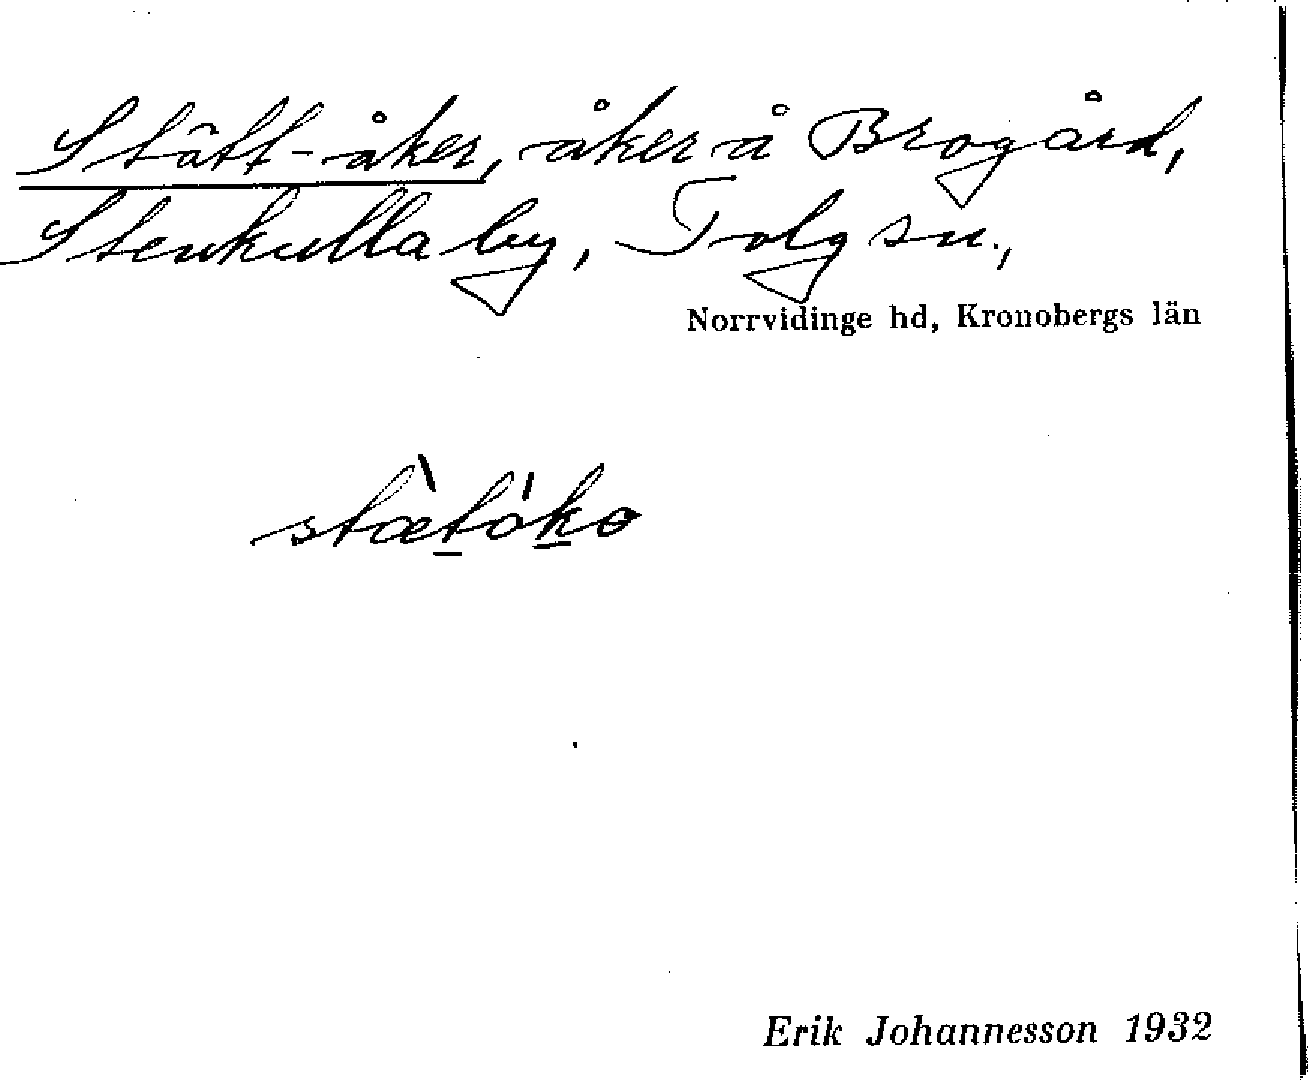 Stätt-åker, åker å Brogård,
Stenkulla by, Tolg sn.,
Norrvidinge hd, Kronobergs län
stæ̀tåko
Erik Johannesson 1932